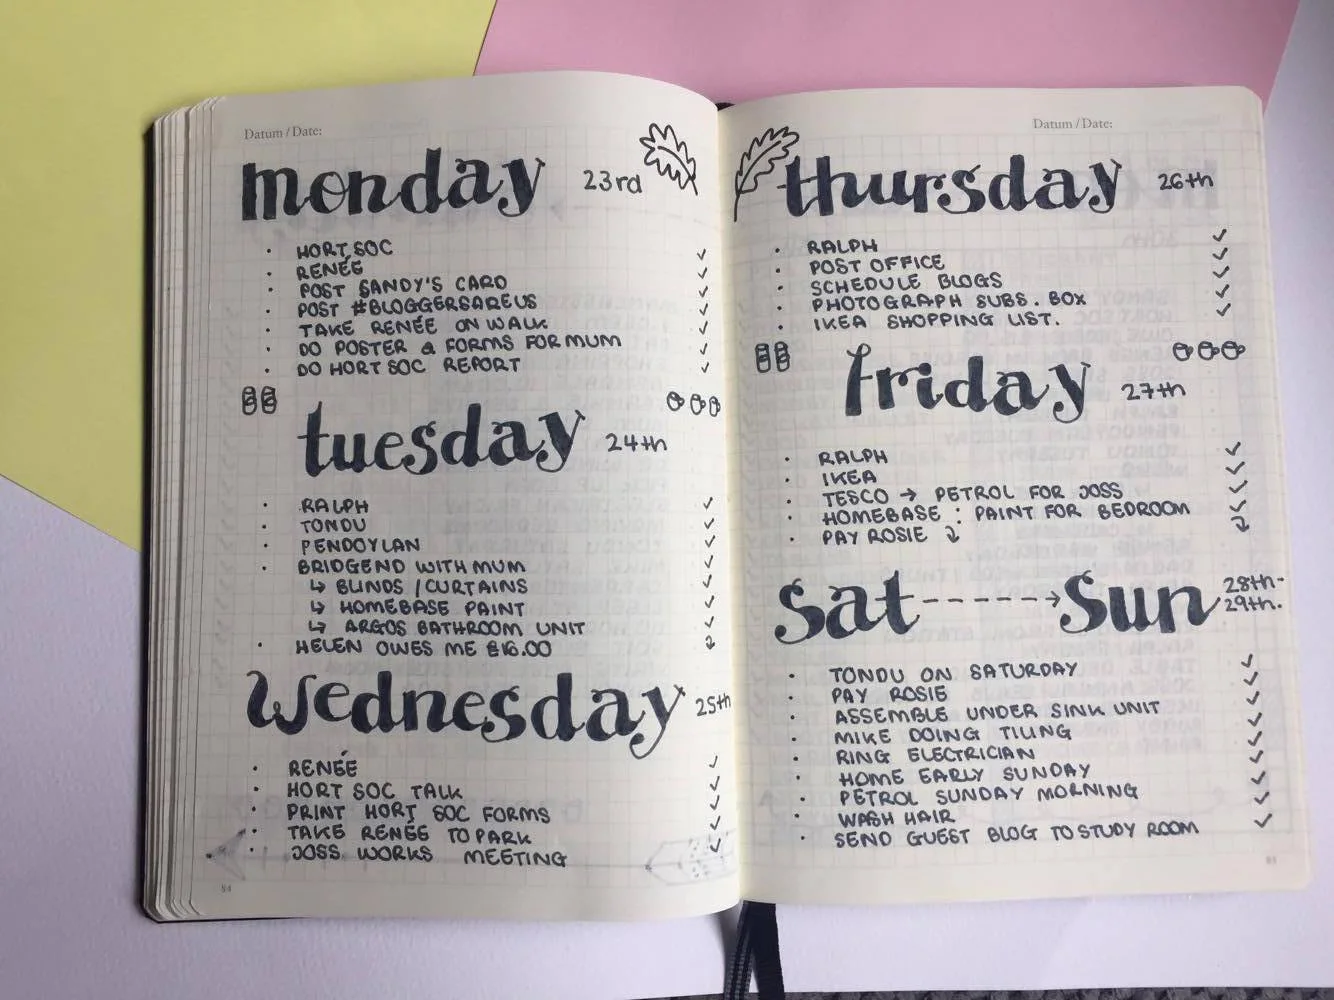 Datum / Date:
monday 23rd
· HORT SOC ✓
· RENÉE
· POST SANDY'S CARD ✓
· POST #BLOGGERSAREUS ✓
· TAKE RENÉE ON WALK ✓
· DO POSTER & FORMS FOR MUM ✓
· DO HORT SOC REPORT ✓
tuesday 24th
· RALPH ✓
· TONDU ✓
· PENDOYLAN ✓
· BRIDGEND WITH MUM ✓
↳ BLINDS / CURTAINS ✓
↳ HOMEBASE PAINT ✓
↳ ARGOS BATHROOM UNIT ✓
· HELEN OWES ME £16.00
Wednesday 25th
· RENÉE ✓
· HORT SOC TALK ✓
· PRINT HORT SOC FORMS ✓
· TAKE RENÉE TO PARK ✓
· JOSS WORKS MEETING ✓
84
Datum / Date:
thursday 26th
· RALPH ✓
· POST OFFICE ✓
· SCHEDULE BLOGS ✓
· PHOTOGRAPH SUBS. BOX ✓
· IKEA SHOPPING LIST. ✓
friday 27th
· RALPH ✓
· IKEA ✓
· TESCO → PETROL FOR JOSS ✓
· HOMEBASE : PAINT FOR BEDROOM ✓
· PAY ROSIE
Sat - - - - - → Sun 28th-
29th.
· TONDU ON SATURDAY ✓
· PAY ROSIE ✓
· ASSEMBLE UNDER SINK UNIT ✓
· MIKE DOING TILING ✓
· RING ELECTRICIAN ✓
· HOME EARLY SUNDAY ✓
· PETROL SUNDAY MORNING ✓
· WASH HAIR ✓
· SEND GUEST BLOG TO STUDY ROOM ✓